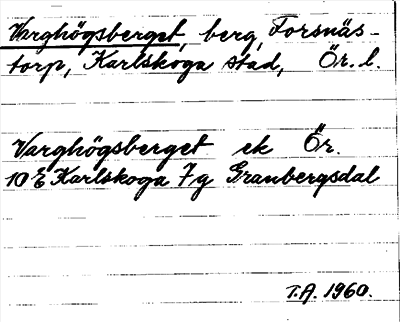 Varghögsberget, berg, Forsnäs-
torp, Karlskoga stad, Ör. l.
Varghögsberget ek Ör.
10 E Karlskoga 7g Granbergsdal
T.A. 1960.